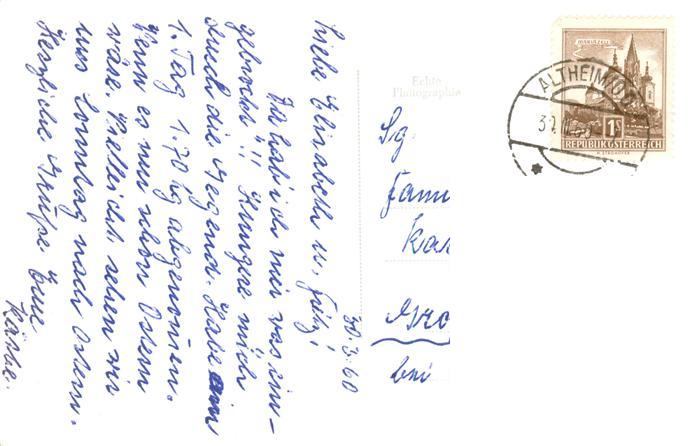 30.3.60
Liebe Elisabeth u. Fritz!
Da hab ich mir was ein-
gebrockt!! Hungere mich
durch die Gegend. Habe am
1. Tag 1.70 kg abgenommen.
Wenn es nur schon Ostern
wäre. Vielleicht sehen wir
uns Sonntag nach Ostern.
Herzliche Grüße Eure
Käthe.
Echte
Photographie
Sg.
Fami
Kar
Gro
bei
MARIAZELL
1S
REPUBLIK ÖSTERREICH
ALTHEIM
60